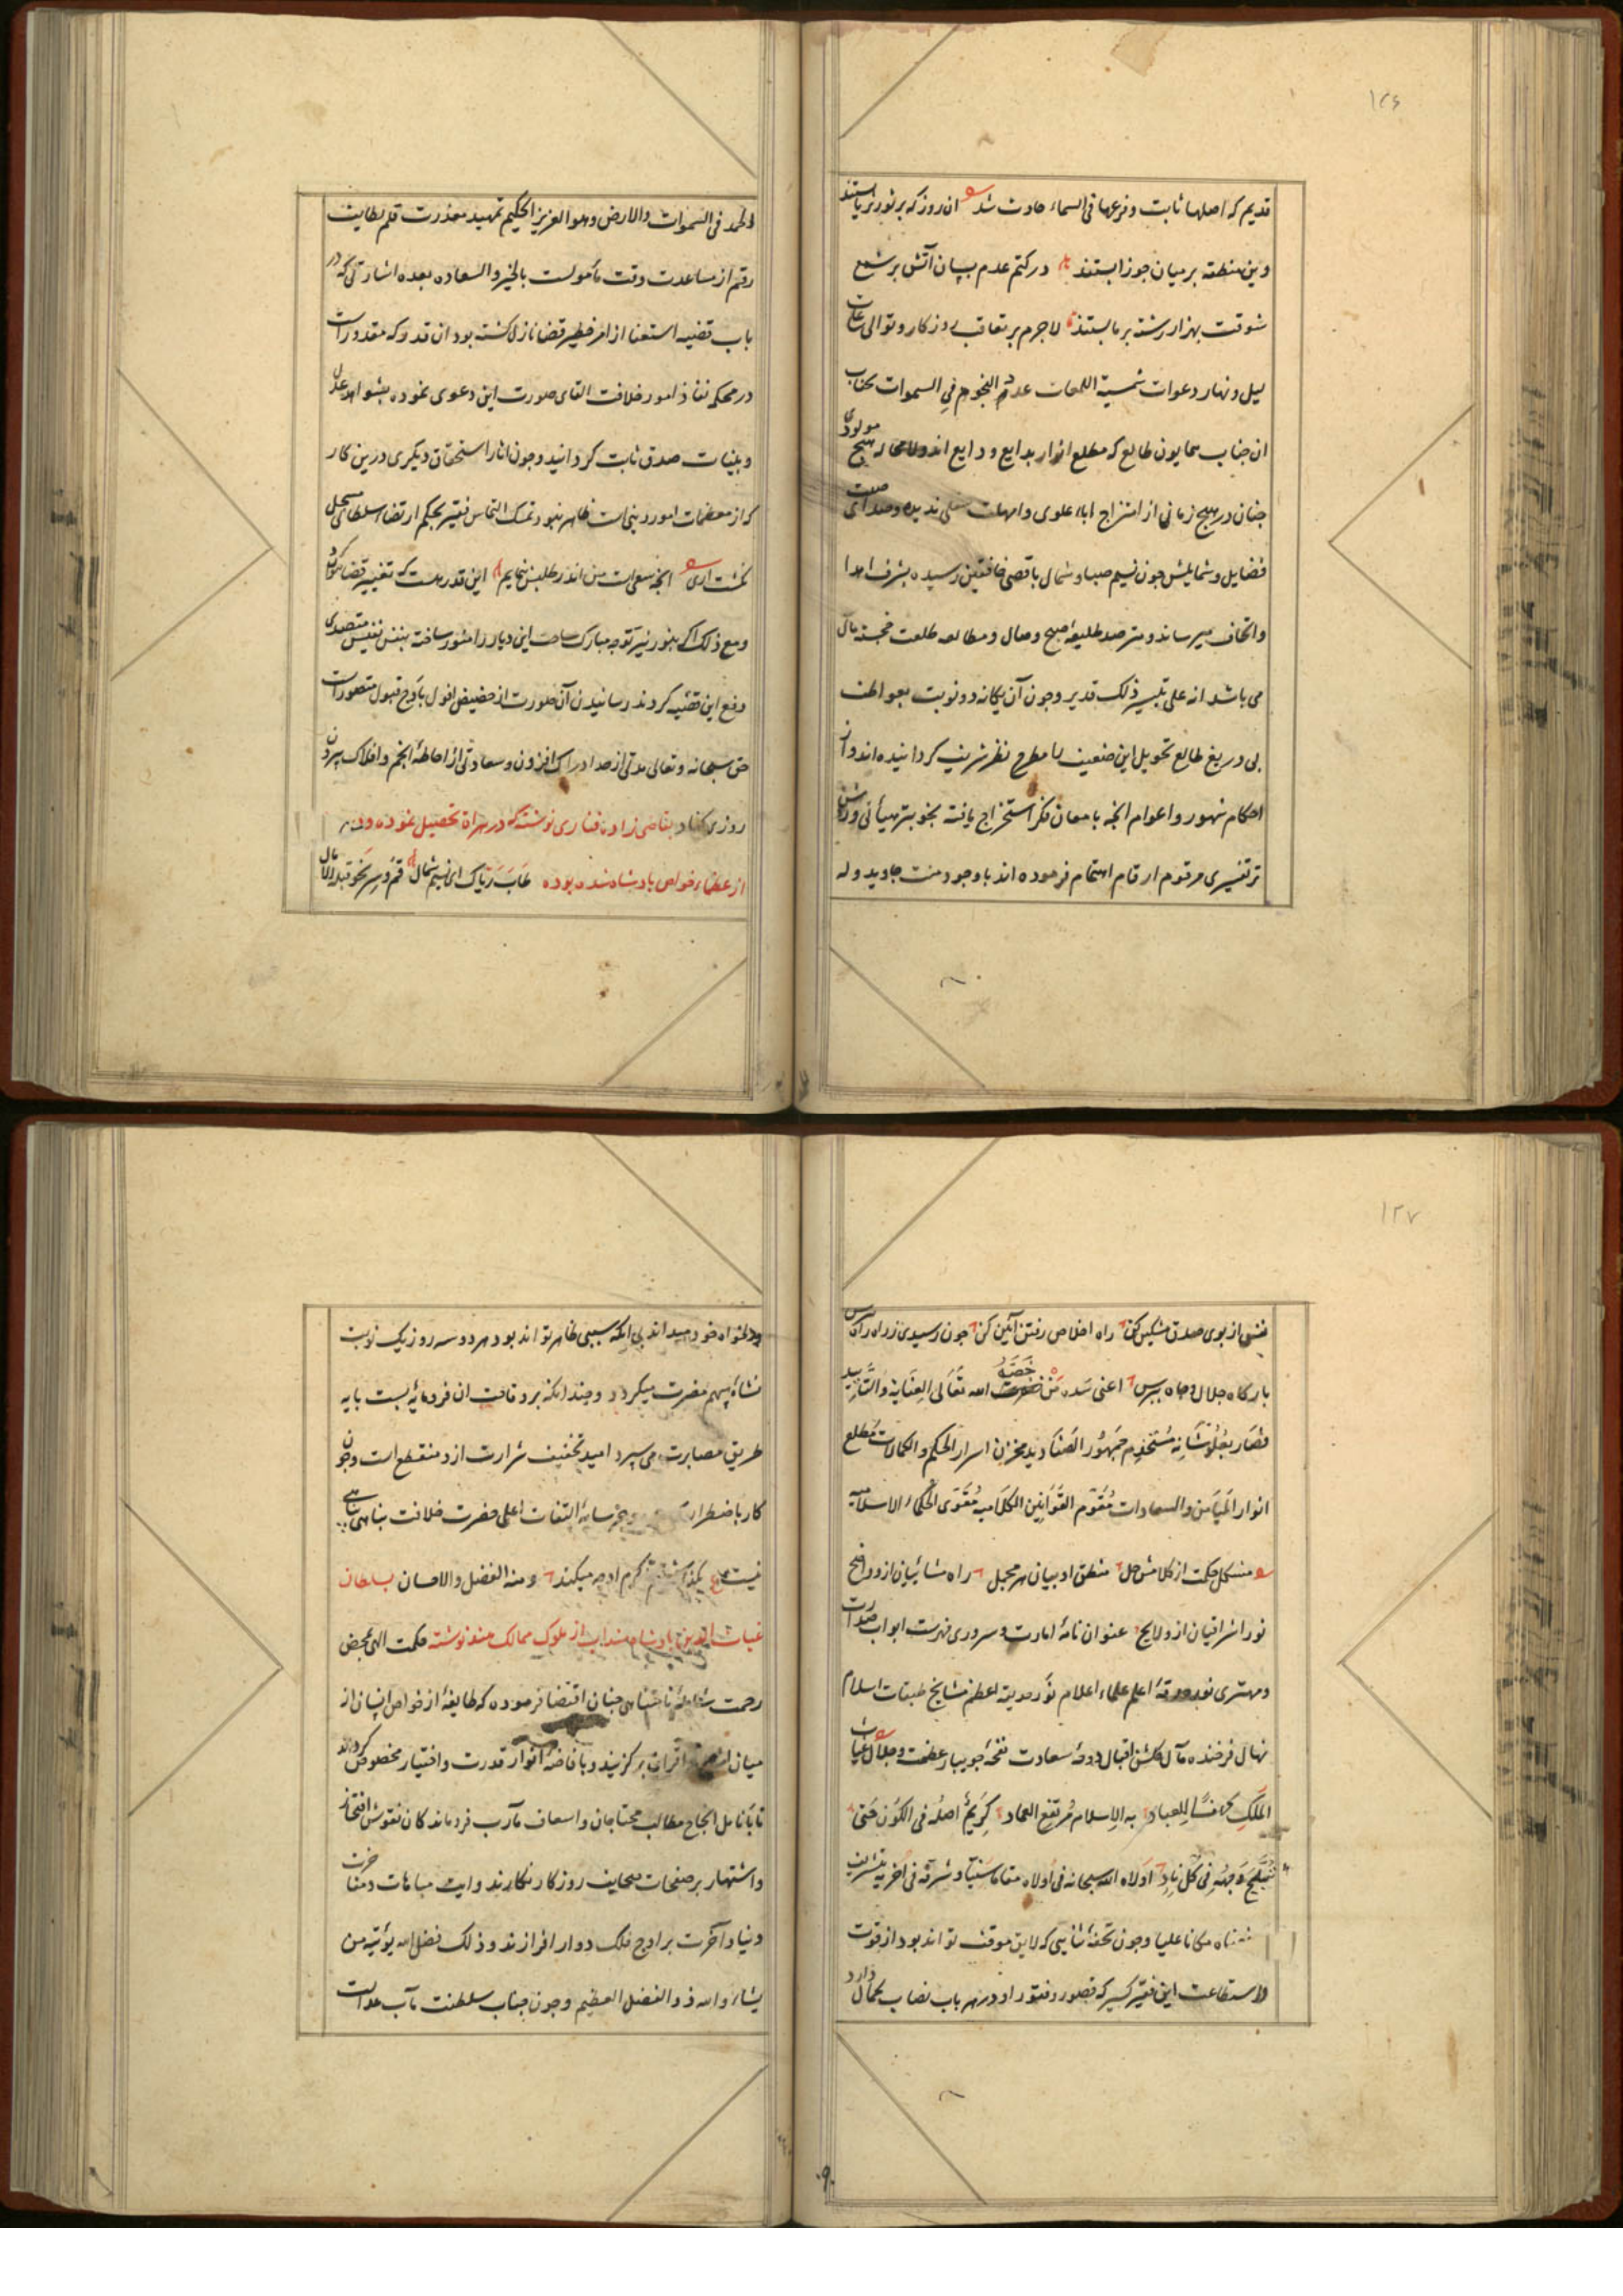 ١٢٦
قدیم که اصلها ثابت و فرعها فی السماء حادث شد آن روز که بر ثور ثریا بستند
وین منطقه بر میان جوزا بستند در کتم عدم بسان آتش بر شمع
شوقت بهزار رشته بر ما بستند لاجرم بر تعاقب روزکار و توالی
لیل و نهار دعوات شمسیة اللمعات عدد النجوم فی السموات بجناب
ان جناب همایون طالع که مطلع انوار بدایع و ودایع اند و لامحاله هیچ مولودی
جنان در هیچ زمانی از امتزاج اباء علوی و امهات سفلی ندیده و صدای صیت
فضایل و شمایلش جون نسیم صبا و شمال باقصی خافقین رسیده بشرف اهدا
و اتحاف میرساند و مترصد طلیعهٔ صبح وصال و مطالعه طلعت خجسته مآل
می باشد انه علی تیسیر ذلک قدیر و جون آن یکانه دو نوبت بعواطف
بی دریغ طالع تحویل این ضعیف را مطرح نظر شریف کردانیده اند و از
احکام شهور و اعوام انجه بامعان فکر استخراج یافته بخوبتر هیأتی و
تر تفسیری مرقوم ارقام اهتمام فرموده اند باوجود منت جاوید وله
الحمد فی السموات والارض وهو العزیز الحکیم تمهید معذرت قلم لطایف
رقم از مساعدت وقت مأمولست بالخیر والسعاده بعده اشارتی که در
باب قضیه استعفا از امر خطیر قضا نازل کشته بود ان قدوه که مقدورات
در محکمه نفاذ امور خلافت القای صورت این دعوی نموده بشواهد عدل
و بینات صدق ثابت کردانید و جون اثار استحقاق دیکری درین کار
که از معظمات امور دینی است ظاهر نبود تمسک التماس فقیر بحکم ارتضاء سلطانی مسجل
نکشت اری انجه سعی است من اندر طلبش بنمایم این قدر هست که تغییر قضا نتوان
و مع ذلک اکر بنور نیر توجه مبارک ساحت این دیار را منور ساخته بنفس نفیس متصدی
رفع این قضیه کردند رسانیدن آن صورت از حضیض افول باوج قبول متصورات
حق سبحانه و تعالی مدتی از حد ادراک افزون و سعادتی از احاطهٔ انجم و افلاک بیرون
روزی کناد بقاضی زاده فناری نوشته که در هراة تحصیل نموده و در
از عظماء خواص بادشاه شده بوده طاب ریاک ای نسیم شمال قم و سر نحو قبلة الآمال
١٢٧
نفسی از بوی صدق مشکین کن راه اخلاص رفتن آیین کن جون رسیدی ز راه راه
بارکاه جلال و جاه ببرس اعنی سده من خصه الله تعالی العنایة والتایید
فصار بعلو شانه مستخدم جمهور الصنادید مخزن اسرار الحکم و الکمالات مطلع
انوار المیامن والسعادات مقوم القوانین الکلامیه مقوی الحکماء الاسلامیه
مشکل حکمت از کلامش حل منطق او بیان هر مجمل راه مشائیان ازو واضح
نور اشراقیان ازو لایح عنوان نامهٔ امارت و سروری فهرست ابواب صدارت
و مهتری نور حدقهٔ اعلم علماء اعلام نور حدیقهٔ اعظم مشایخ طبقات اسلام
نهال فرخنده مآل کلشن اقبال دوحهٔ سعادت نفحهٔ جویبار عظمت و جلال غیاث
الملک للعباد به الاسلام مرتفع العماد کریم اصله فی الکون حتی
وجهه فی کل ناد اولاه الله سبحانه فی اولاه مقاما سنیا و شرفه فی اخریه بتشریف
مکانا علیا و جون تحفهٔ ثنایی که لایق موقف تواند بود از قوت
و استطاعت این فقیر کسیر که قصور و فتور او در هر باب نصاب کمال دارد
دلخواه خود میداند بی انکه سببی ظاهر تواند بود هر دو سه روز یک نوبت
نشانهٔ سهم مضرت میکردد و جندانکه بر وفاقت ان فرومایهٔ بست بایه
طریق مصابرت می سپرد امید تخفیف شرارت ازو منقطع است و جون
کار باضطرار و بجز سایهٔ التفات اعلی حضرت خلافت بناهی
نیست کرم او جه میکند و منه الفضل والاحسان بسلطان
غیاث الدین بادشاه از ملوک ممالک هند نوشته حکمت الهی محض
رحمت شاملهٔ نامتناهی جنان اقتضا فرموده که طایفهٔ از خواص انسان از
میان اقران برکزیند و بافاضهٔ انوار قدرت و اختیار مخصوص کردانند
تا بانامل انجاح مطالب محتاجان و اسعاف مآرب فروماندکان نقوش افتخار
و اشتهار بر صفحات صحایف روزکار نکارند و رایت مباهات و مفاخرت
دنیا و آخرت بر اوج فلک دوار افرازند و ذلک فضل الله یؤتیه من
یشاء والله ذو الفضل العظیم و جون جناب سلطنت مآب عدالت